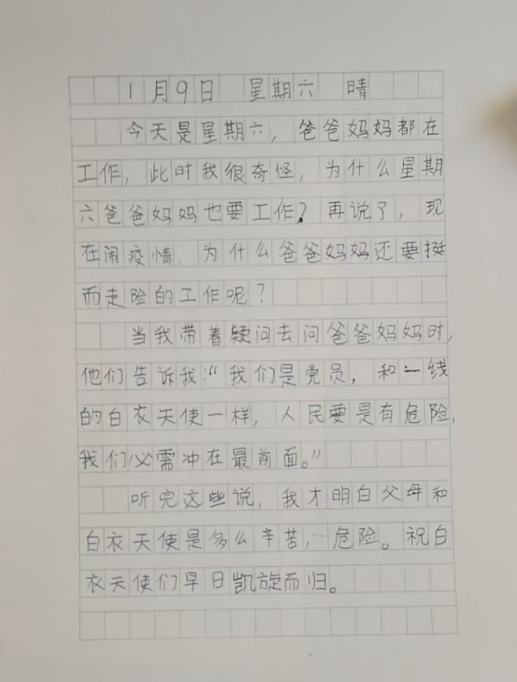 1月9日 星期六 晴
今天是星期六，爸爸妈妈都在
工作，此时我很奇怪，为什么星期
六爸爸妈妈也要工作？再说了，现
在闹疫情，为什么爸爸妈妈还要挺
而走险的工作呢？
当我带着疑问去问爸爸妈妈时，
他们告诉我：“我们是党员，和一线
的白衣天使一样，人民要是有危险，
我们必需冲在最前面。”
听完这些说，我才明白父母和
白衣天使是多么辛苦，危险。祝白
衣天使们早日凯旋而归。